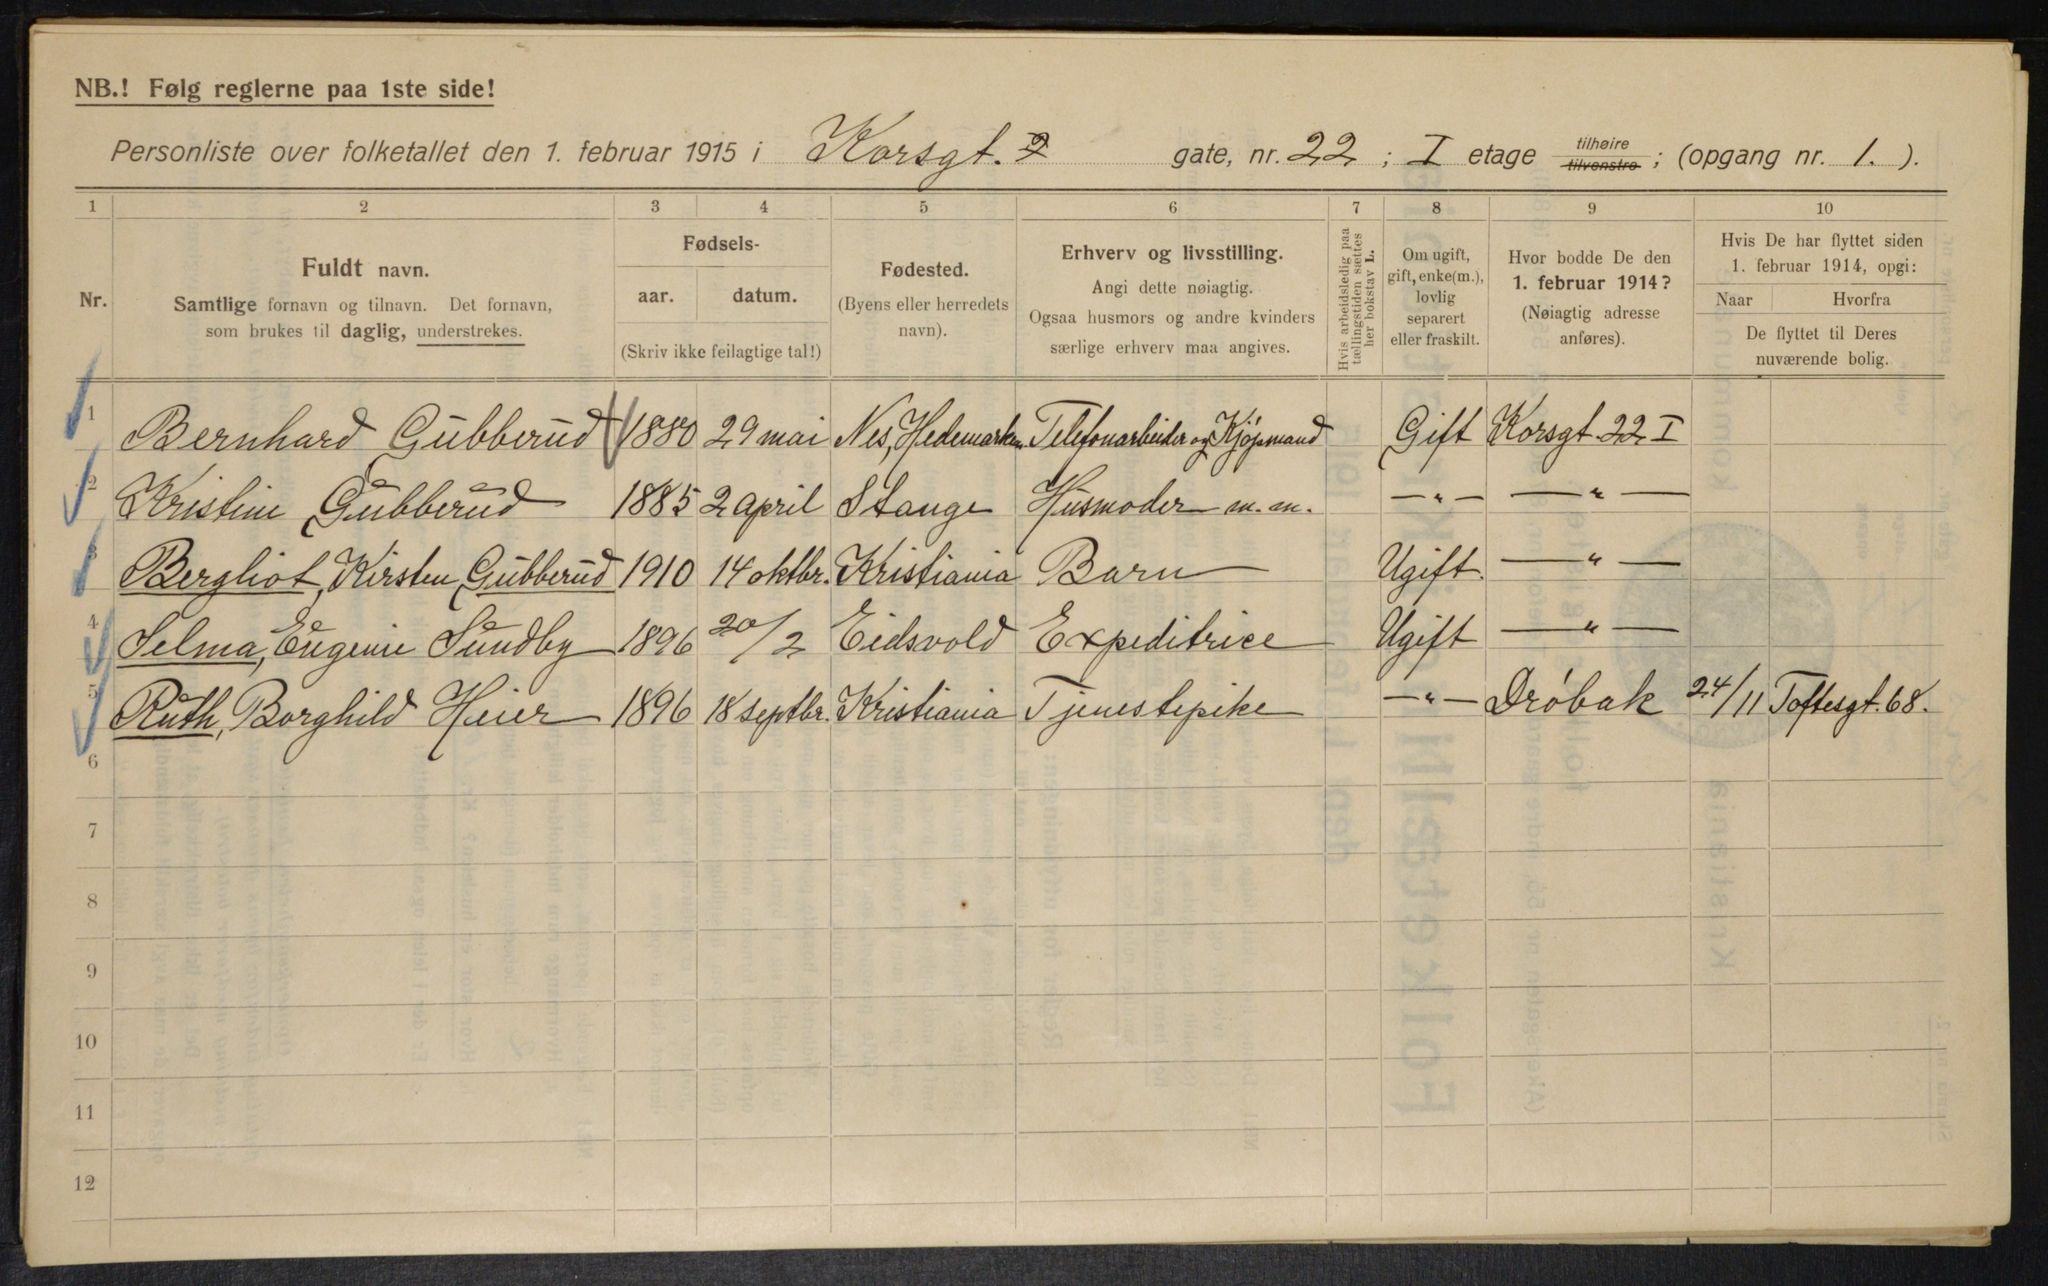 NB.! Følg reglerne paa 1ste side!
Personliste over folketallet den 1. februar 1915 i Korsgt. 2 gate, nr. 22 ; I etage tilhøire tilvenstre ; (opgang nr. 1. ).
1 2 3 4 5 6 7 8 9 10
Nr.
Fuldt navn.
Samtlige fornavn og tilnavn. Det fornavn,
som brukes til daglig, understrekes.
Fødsels-
aar. datum.
(Skriv ikke feilagtige tal!)
Fødested.
(Byens eller herredets
navn).
Erhverv og livsstilling.
Angi dette nøiagtig.
Ogsaa husmors og andre kvinders
særlige erhverv maa angives.
Hvis arbeidsledig paa
tællingstiden sættes
her bokstav L.
Om ugift,
gift, enke(m.),
lovlig
separert
eller fraskilt.
Hvor bodde De den
1. februar 1914?
(Nøiagtig adresse
anføres).
Hvis De har flyttet siden
1. februar 1914, opgi:
Naar Hvorfra
De flyttet til Deres
nuværende bolig.
1 Bernhard Gubberud 1880 29 mai Nes, Hedemarken Telefonarbeider og Kjøpmand Gift Korsgt. 22 I
2 Kristine Gubberud 1885 2 april Stange Husmoder m. m. —"— —"—
3 Bergliot, Kirsten Gubberud 1910 14 oktbr. Kristiania Barn Ugift. —"—
4 Selma, Eugenie Sundby 1896 20/2 Eidsvold Expeditrice Ugift —"—
5 Ruth, Borghild Heier 1896 18 septbr. Kristiania Tjenestepike —"— Drøbak 24/11 Toftesgt. 68.
6
7
8
9
10
11
12